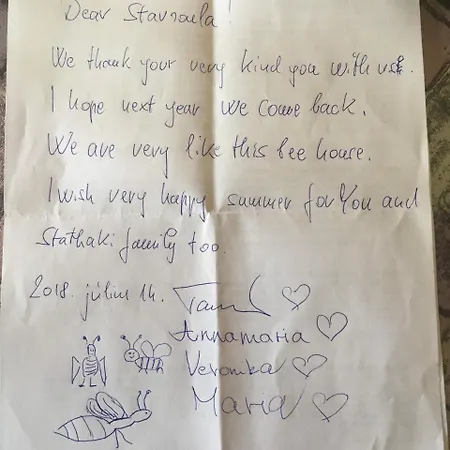 Dear Stavroula!
We thank your very kind you with us.
I hope next year we come back.
We are very like this bee house.
I wish very happy summer for You and
Stathaki family too.
2018. július 14.
Annamaria
Veronika
Maria